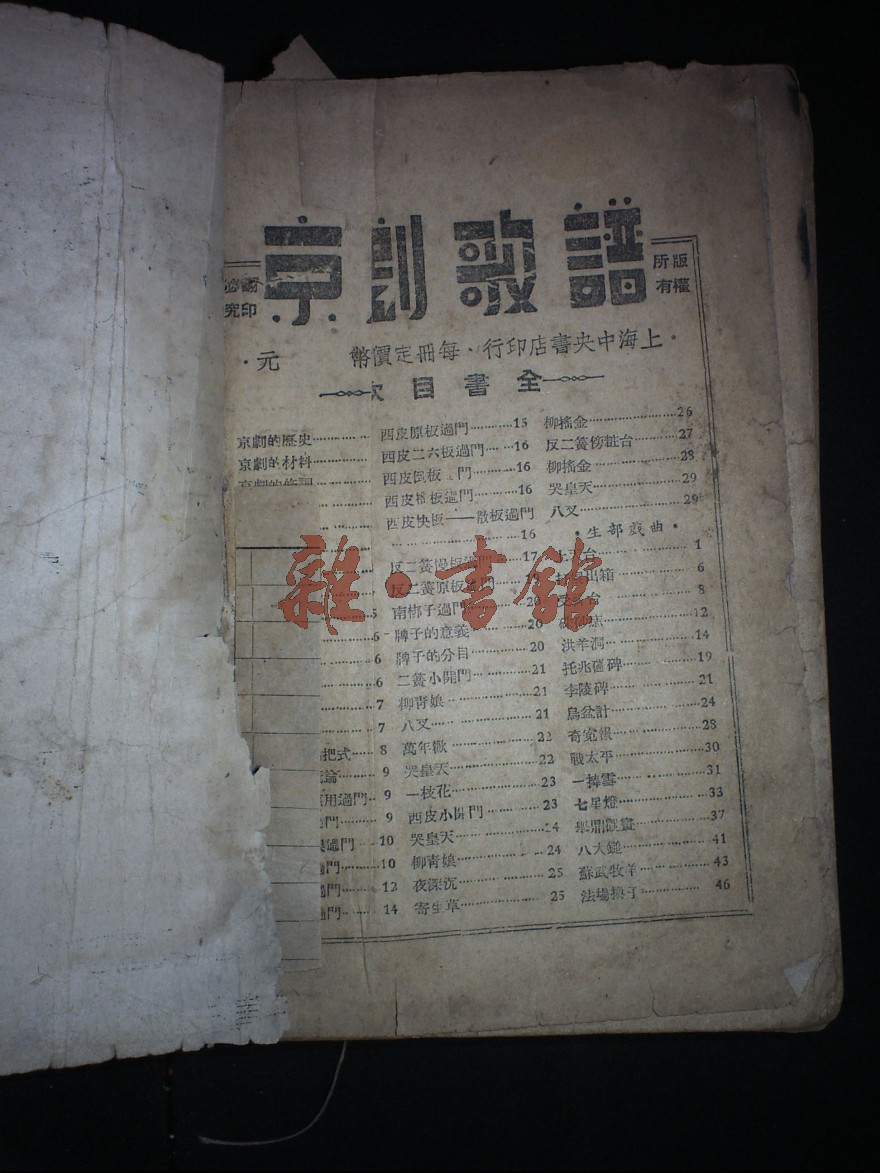 京劇歌譜
版權
所有
翻印
必究
·上海中央書店印行·每冊定價幣 元·
全書目次
京劇的歷史
京劇的材料
5
6
6
6
7
7
把式 8
論 9
用過門 9
門 9
過門 10
門 10
過門 12
過門 14
西皮原板過門 15
西皮二六板過門 16
西皮倒板 門 16
西皮搖板過門 16
西皮快板——散板過門
16
反二簧慢板 17
反二簧原板 門
南梆子過門 20
牌子的意義 20
牌子的分目 20
二簧小開門 21
柳青娘 21
八叉 21
萬年歡 22
哭皇天 22
一枝花 23
西皮小開門 23
哭皇天 24
柳青娘 24
夜深沉 25
寄生草 25
柳搖金 26
反二簧傍粧台 27
柳搖金 28
哭皇天 29
八叉 29
·生部戲曲·
台 1
出箱 6
台 8
12
洪羊洞 14
托兆碰碑 19
李陵碑 21
烏盆計 24
奇冤報 28
戰太平 30
一捧雪 31
七星燈 33
舉鼎觀畫 37
八大鎚 41
蘇武牧羊 43
法場換子 46
雜·書館